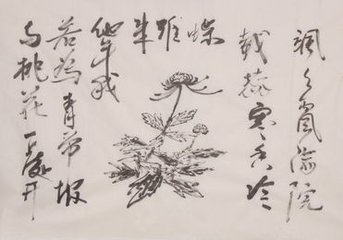 飒々西风满院
栽蕊寒香冷
蝶难来
他年我
若为青帝报
与桃花一处开